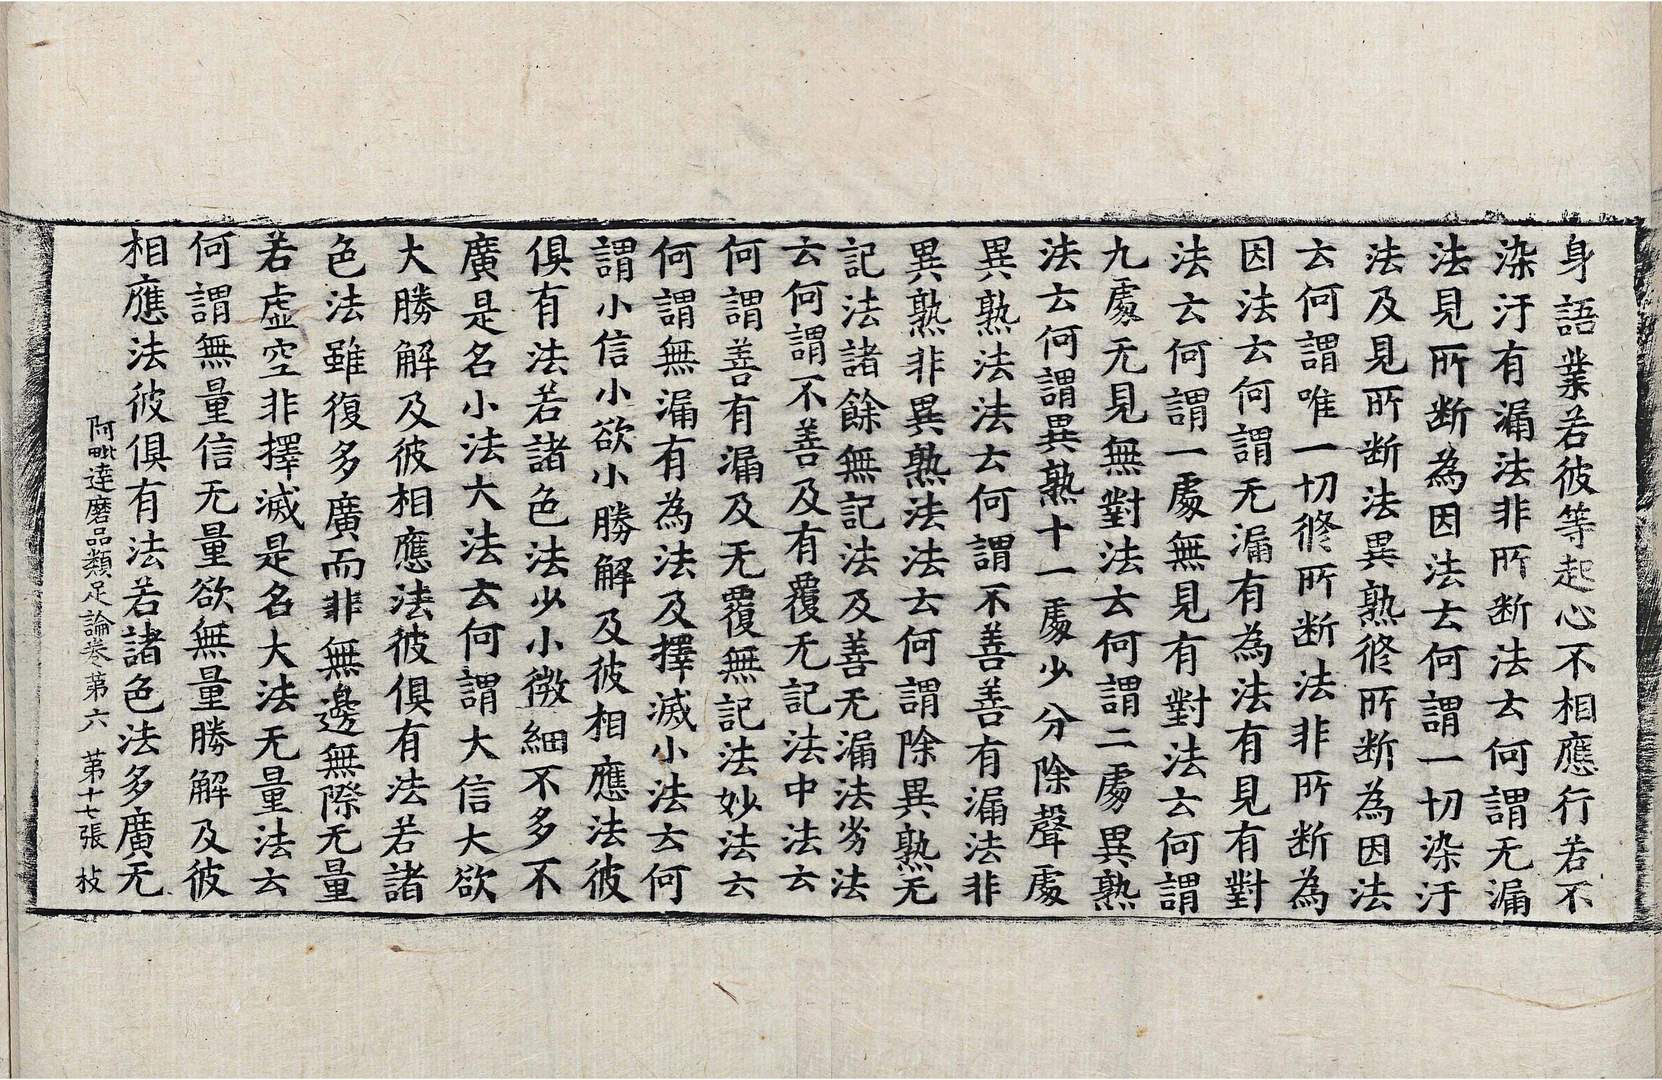 身語業若彼等起心不相應行若不
染汙有漏法非所断法云何謂无漏
法見所断為因法云何謂一切染汙
法及見所断法異熟修所断為因法
云何謂唯一切修所断法非所断為
因法云何謂无漏有為法有見有對
法云何謂一處無見有對法云何謂
九處无見無對法云何謂二處異熟
法云何謂異熟十一處少分除聲處
異熟法法云何謂不善善有漏法非
異熟非異熟法法云何謂除異熟无
記法諸餘無記法及善无漏法劣法
云何謂不善及有覆无記法中法云
何謂善有漏及无覆無記法妙法云
何謂無漏有為法及擇滅小法云何
謂小信小欲小勝解及彼相應法彼
俱有法若諸色法少小微細不多不
廣是名小法大法云何謂大信大欲
大勝解及彼相應法彼俱有法若諸
色法雖復多廣而非無邊無際无量
若虛空非擇滅是名大法无量法云
何謂無量信无量欲無量勝解及彼
相應法彼俱有法若諸色法多廣无
阿毗達磨品類足論卷第六 第十七張 枝